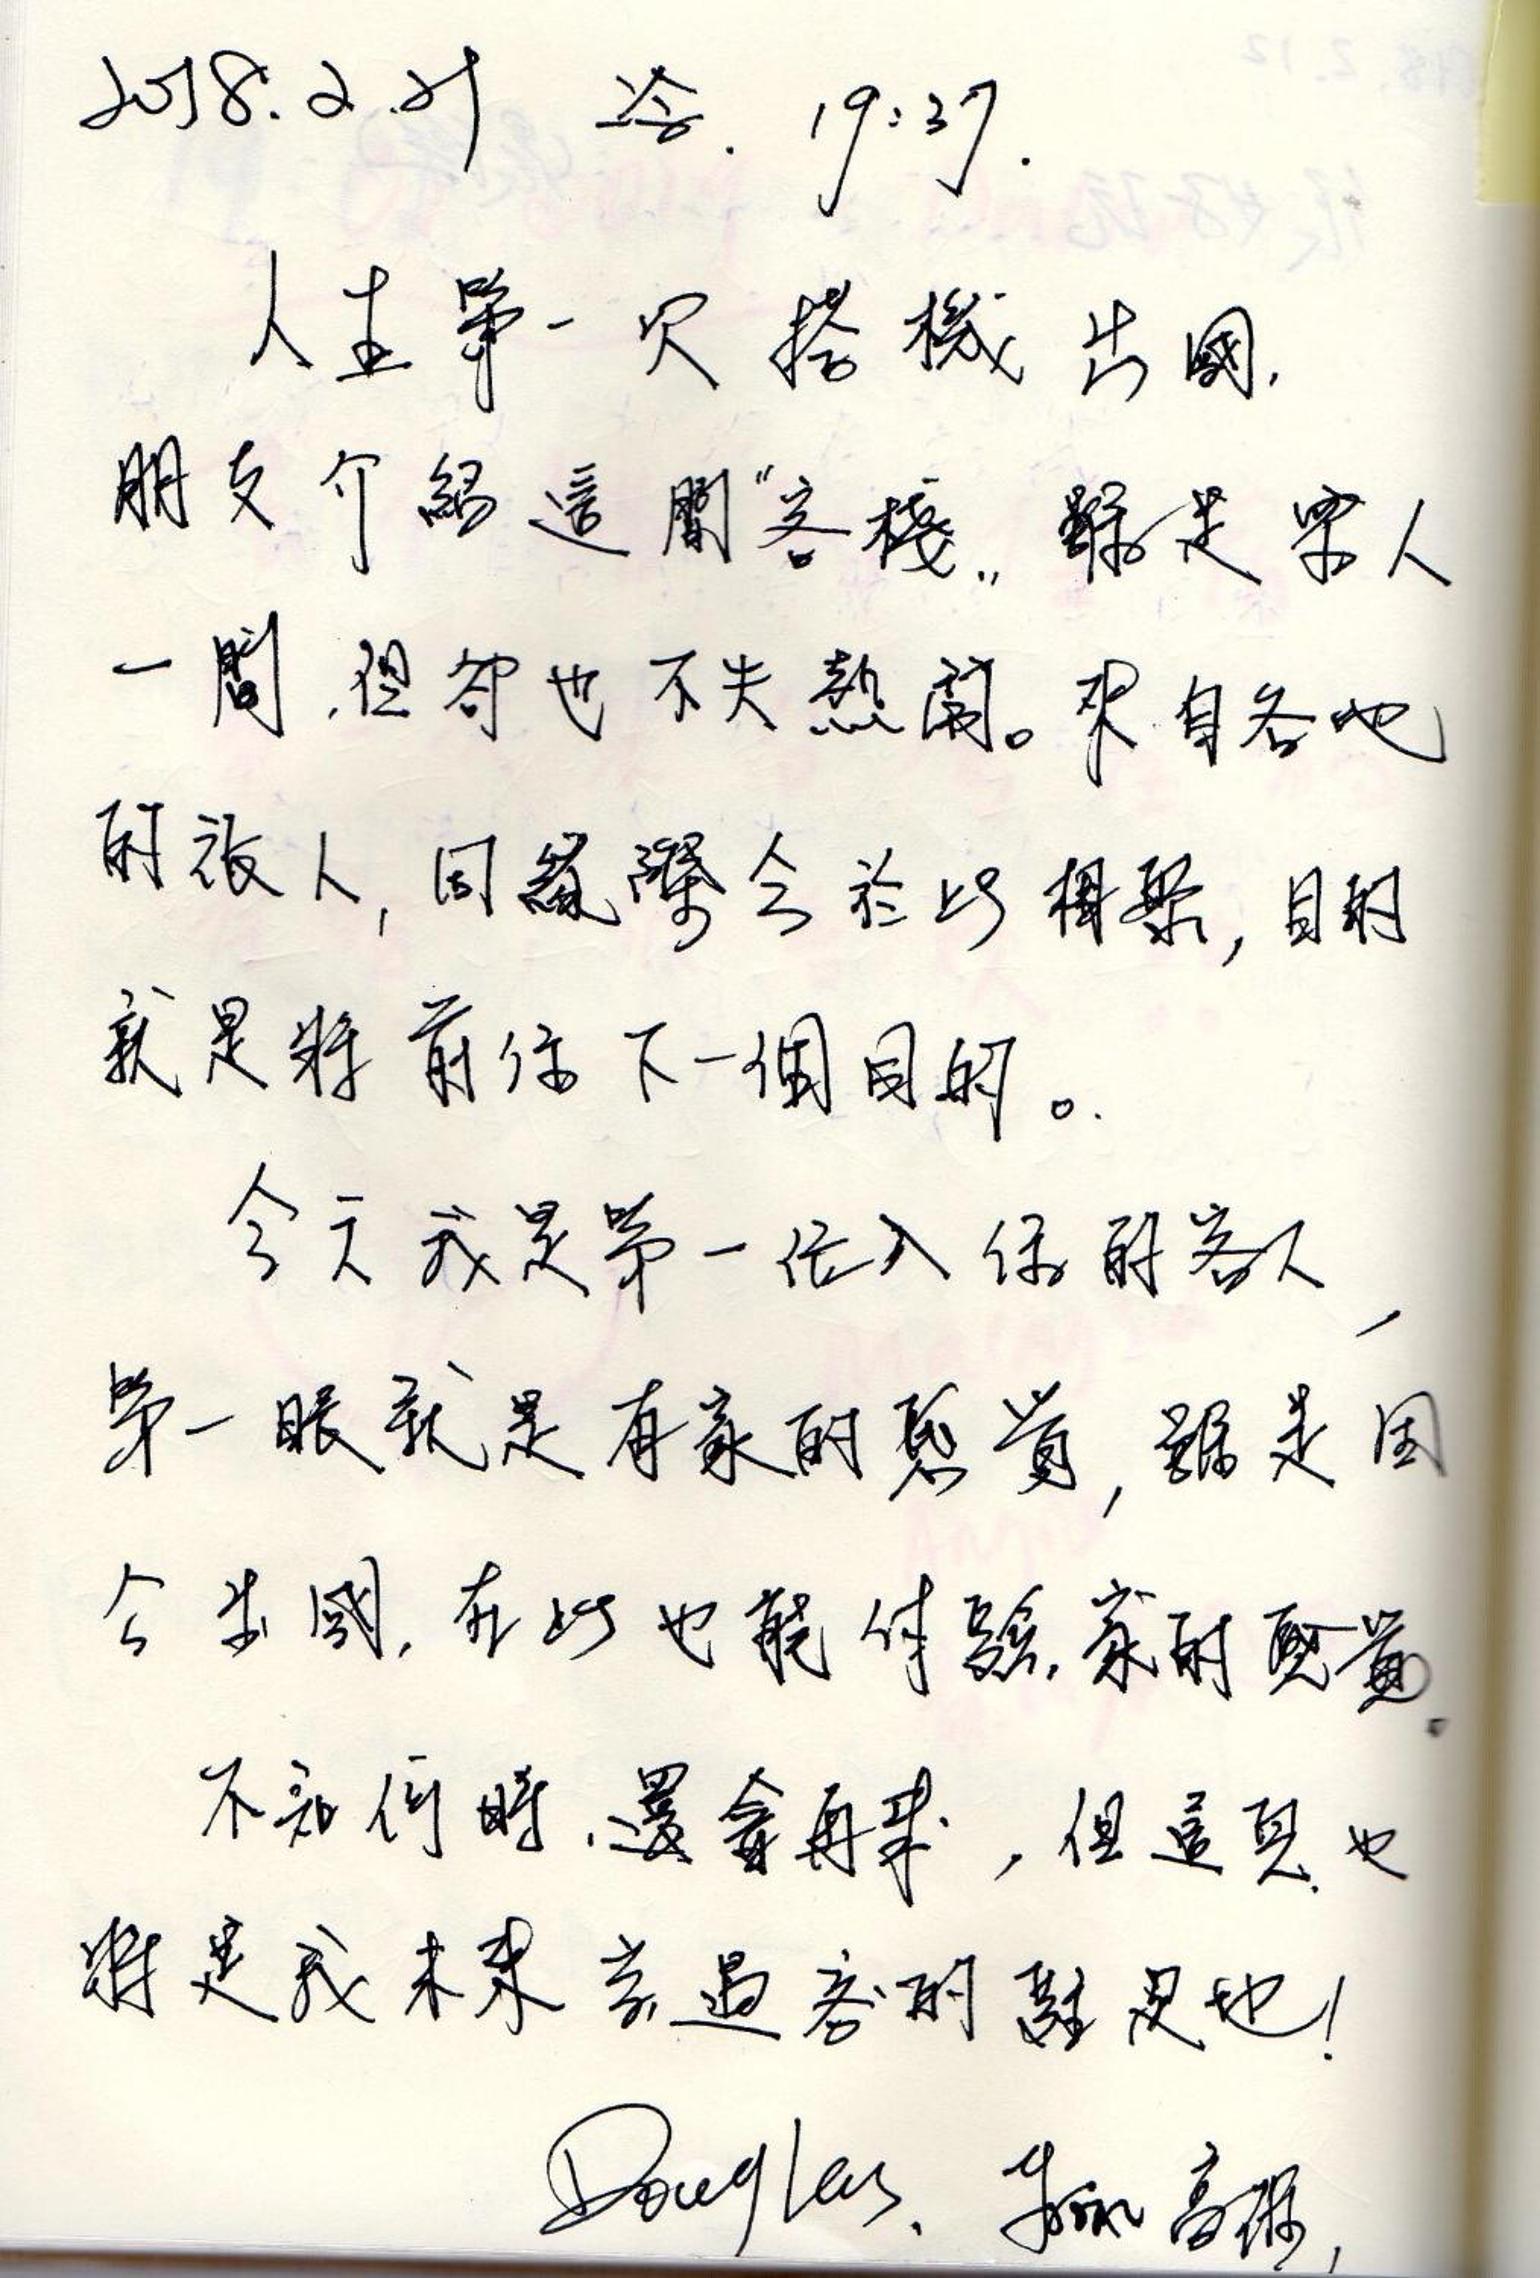 2018.2.21 冷. 19:37.
人生第一次搭機出國.
朋友介紹這間"客棧",雖是眾人
一間,但卻也不失熱鬧。來自各地
的旅人,因緣際會於此相聚,目的
就是將前往下一個目的。
今天我是第一位入住的客人,
第一眼就是有家的感覺,雖是
出國,在此也能体驗家的感覺.
不知何時,還會再來,但這兒也
將是我未來旅客的駐足地!
Douglas. 高雄,